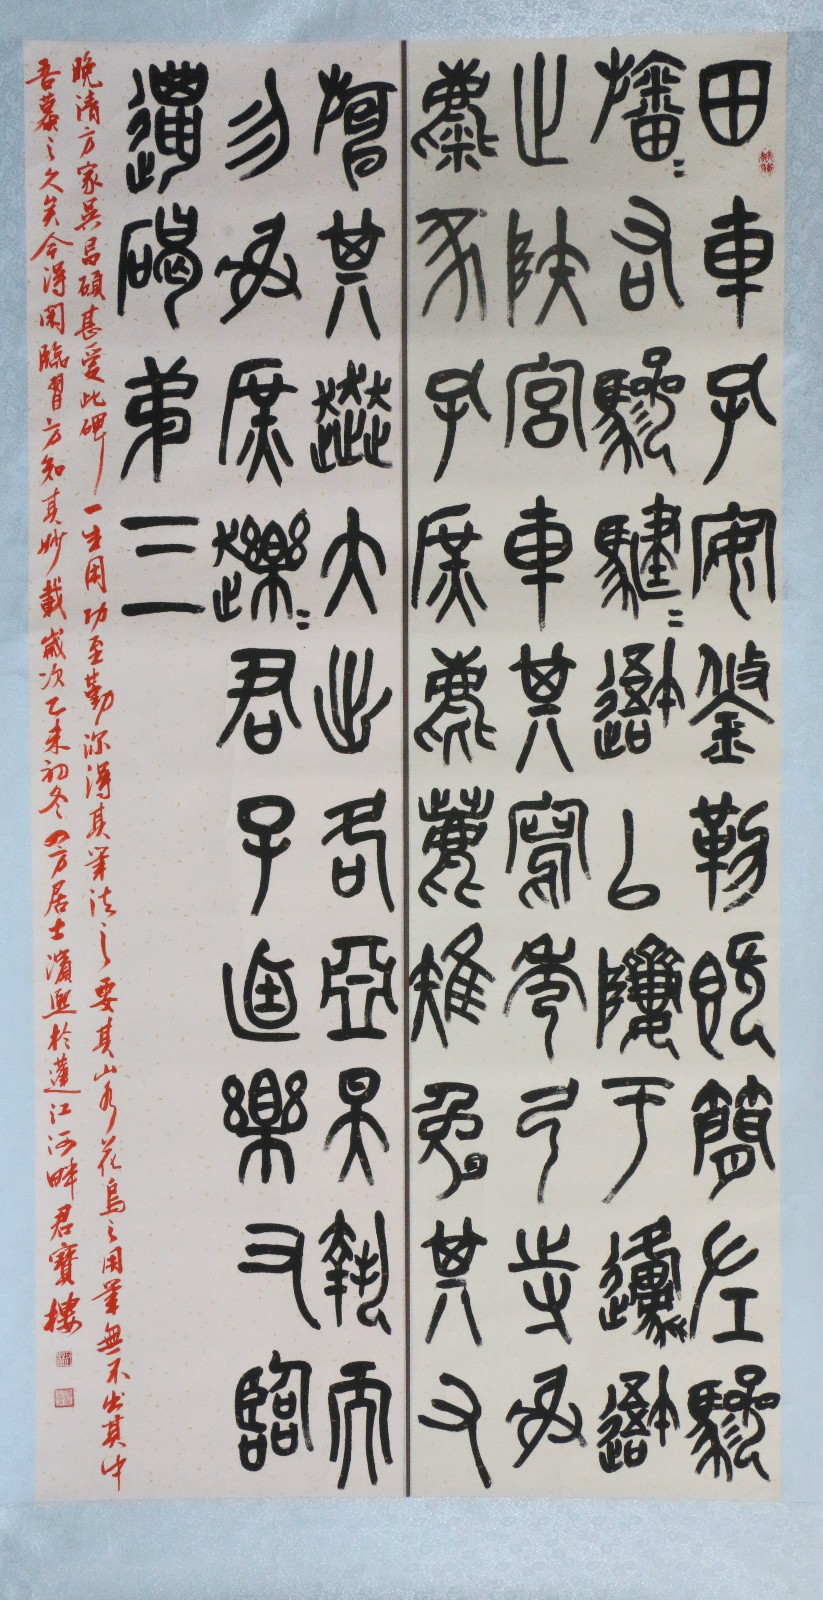 田車孔安鋚勒既簡左驂
旛=右驂騝=吾以隮于邍吾
止陜宮車其寫秀弓寺射
麋豕孔庶麀鹿雉兔其又
其大出各亞昊執而
勿射庶趯=君子逌樂又臨
邋碣弟三
晚清方家吳昌碩甚愛此碑一生用功至勤深得其筆法之要其山水花鳥之用筆無不出其中
吾慕之久矣今得閑臨習方知其妙載歲次乙未初冬四方居士濱熙於蓮江河畔君寶樓